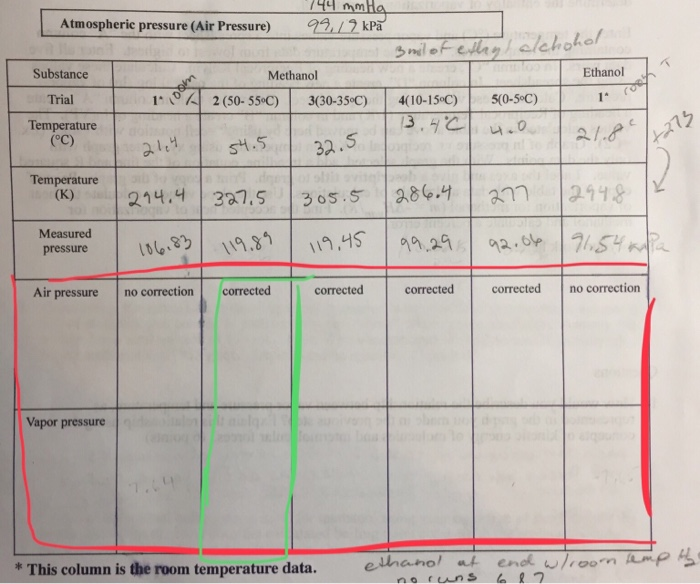 744 mmHg
Atmospheric pressure (Air Pressure) 99.19 kPa
3ml of ethyl alchohol
Substance Methanol Ethanol
room T
Trial 1* room 2 (50- 55ºC) 3(30-35ºC) 4(10-15ºC) 5(0-5ºC) 1*
Temperature (ºC) 21.4 54.5 32.5 13.4°C 4.0 21.8°
+273
Temperature (K) 294.4 327.5 305.5 286.4 277 294.8
Measured pressure 106.83 119.89 119.45 99.29 92.04 91.54 kPa
Air pressure no correction corrected corrected corrected corrected no correction
Vapor pressure
7.64
* This column is the room temperature data.
ethanol at end w/room temp
no runs 6 & 7